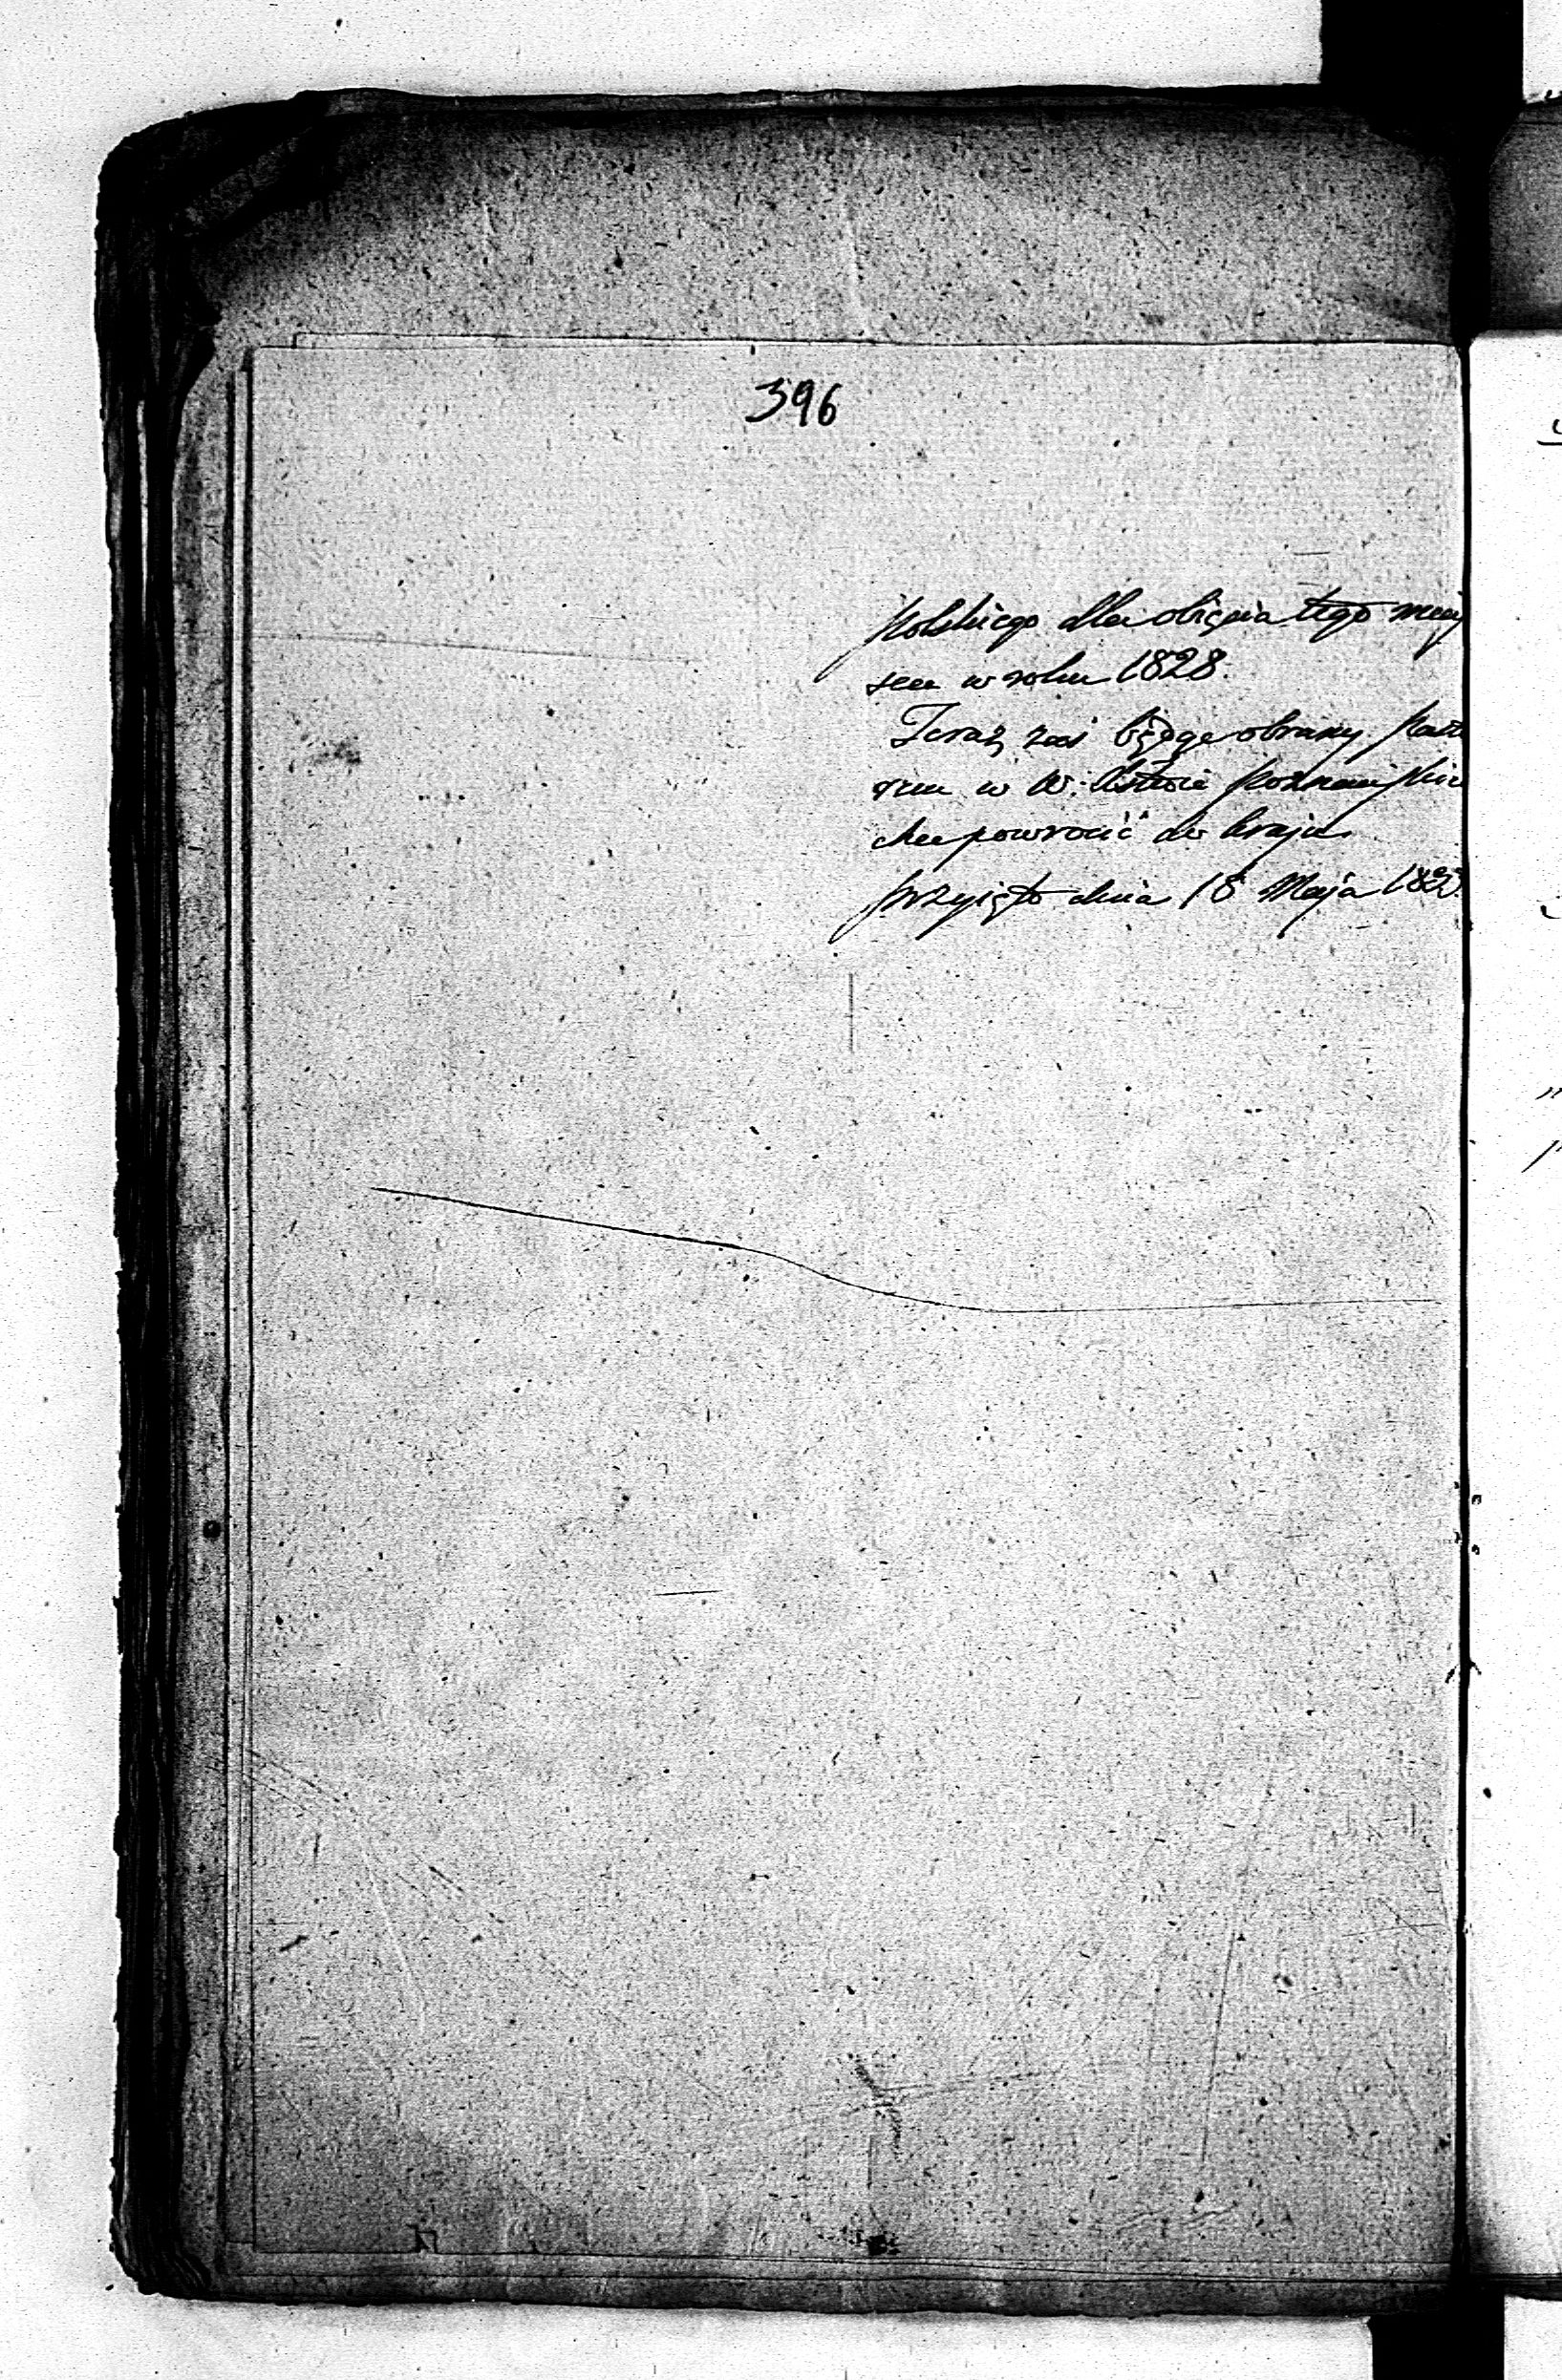 396
Polskiego dla obięcia tego miej
sca w roku 1828.
Teraz zaś będąc obrany Pasto
rem w W. Xstwie Poznańskie
chce powrocić do kraju
przyięto dnia 18 Maja 183